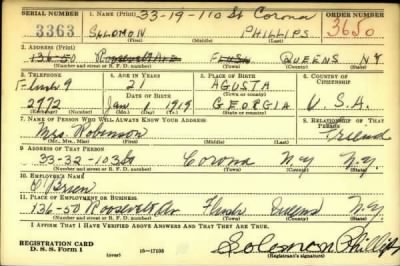 SERIAL NUMBER 1. NAME (Print) 33-19-110 St Corona ORDER NUMBER
3363 SOLOMON PHILLIPS 3650
(First) (Middle) (Last)
2. ADDRESS (Print)
136-50 Roosevelt Ave Flush QUEENS NY
(Number and street or R. F. D. number) (Town) (County) (State)
3. TELEPHONE 4. AGE IN YEARS 5. PLACE OF BIRTH 6. COUNTRY OF CITIZENSHIP
Flush 9 21 AGUSTA
DATE OF BIRTH (Town or county)
2972 Jan 1 1919 GEORGIA U.S.A.
(Exchange) (Number) (Mo.) (Day) (Yr.) (State or country)
7. NAME OF PERSON WHO WILL ALWAYS KNOW YOUR ADDRESS 8. RELATIONSHIP OF THAT PERSON
Mrs. Robinson Friend
(Mr., Mrs., Miss) (First) (Middle) (Last)
9. ADDRESS OF THAT PERSON
33-32-103 St Corona N.Y. N.Y.
(Number and street or R. F. D. number) (Town) (County) (State)
10. EMPLOYER'S NAME
O'Brien
11. PLACE OF EMPLOYMENT OR BUSINESS
136-50 Roosevelt Av Flush Queens N.Y.
(Number and street or R. F. D. number) (Town) (County) (State)
I AFFIRM THAT I HAVE VERIFIED ABOVE ANSWERS AND THAT THEY ARE TRUE.
REGISTRATION CARD
D. S. S. Form 1 (over) 16-17105 Solomon Phillips
(Registrant's signature)